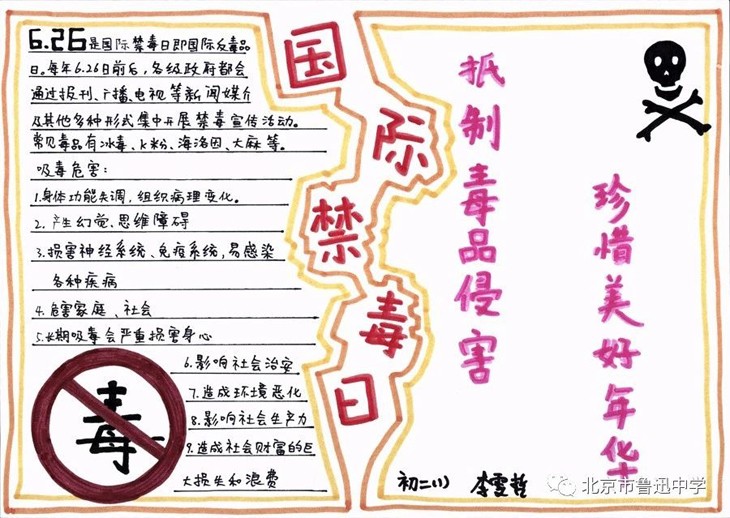 6.26是国际禁毒日即国际反毒品
日。每年6.26日前后，各级政府都会
通过报刊、广播、电视等新闻媒介
及其他多种形式集中开展禁毒宣传活动。
常见毒品有冰毒、K粉、海洛因、大麻等。
吸毒危害：
1.身体功能失调，组织病理变化。
2.产生幻觉、思维障碍
3.损害神经系统、免疫系统，易感染
各种疾病
4.危害家庭、社会
5.长期吸毒会严重损害身心
6.影响社会治安
7.造成环境恶化
8.影响社会生产力
9.造成社会财富的巨
大损失和浪费
毒
国际禁毒日
抵制毒品侵害
珍惜美好年华
初二(1) 李雯哲
北京市鲁迅中学